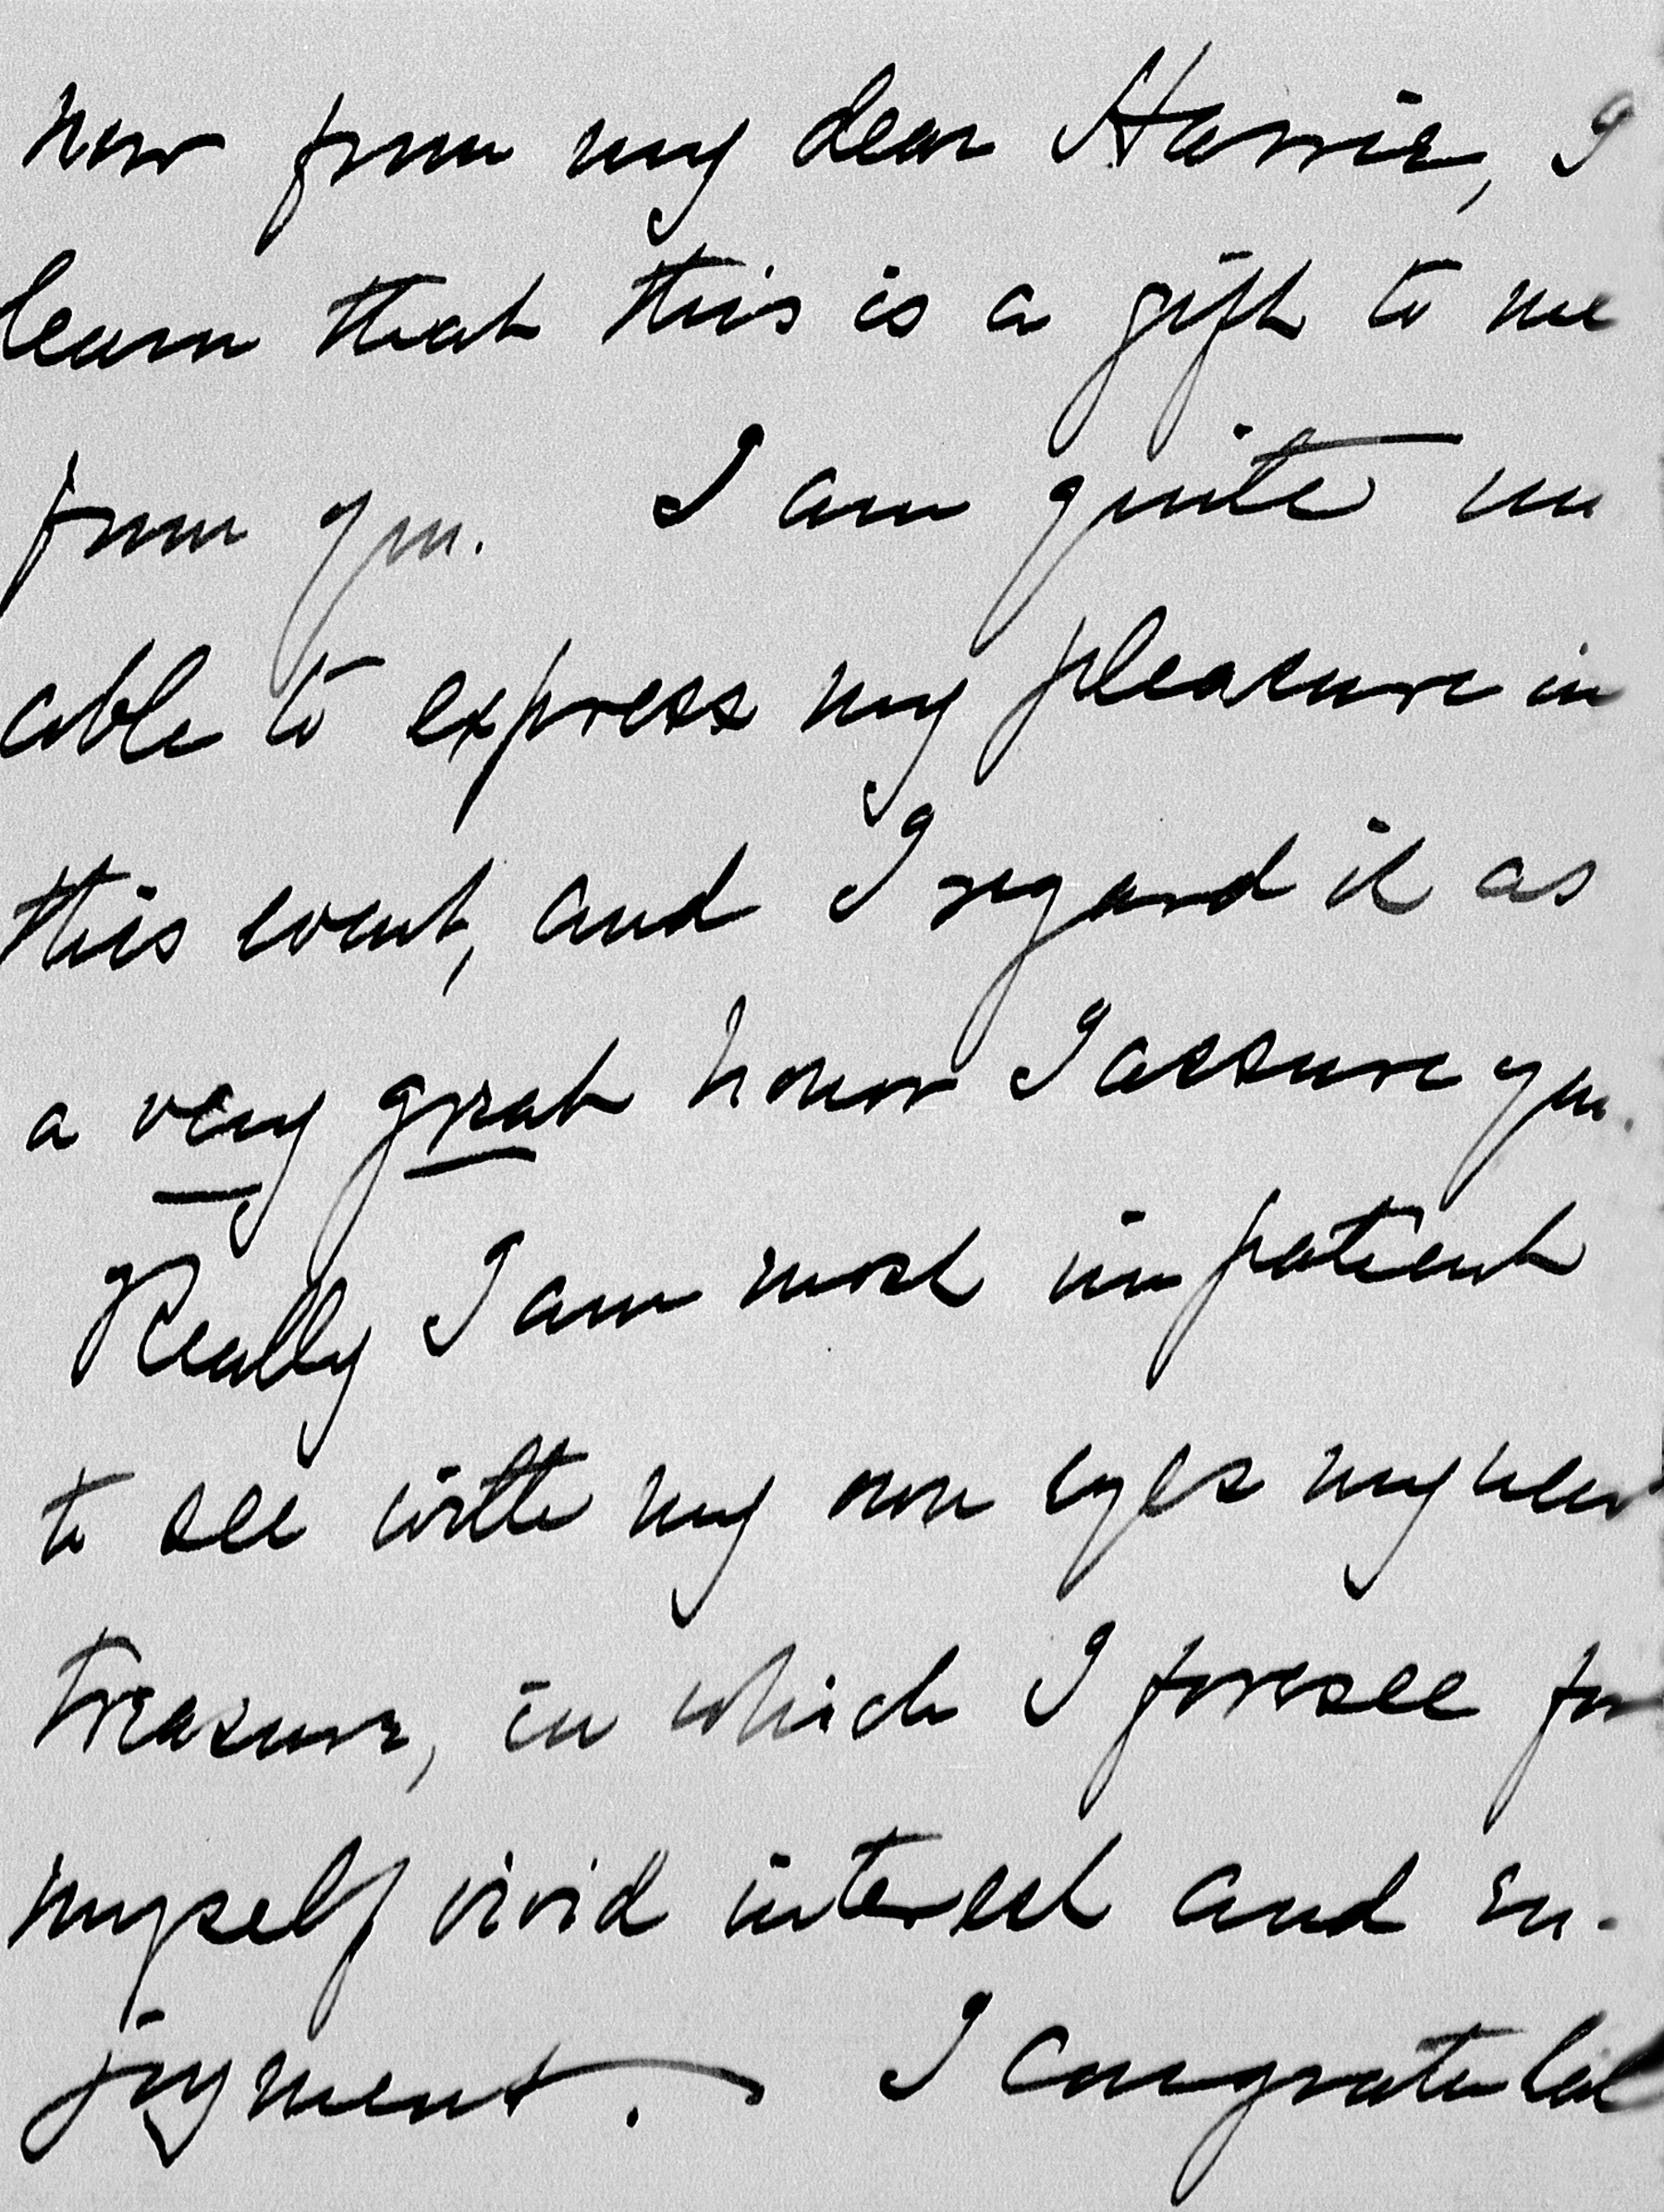 now from my dear Harrie, I
learn that this is a gift to me
from you. I am quite un
able to express my pleasure in
this event, and I regard it as
a very great honor I assure you.
Really I am most impatient
to see with my own eyes my new
treasure, in which I foresee for
myself vivid interest and en-
joyment. I congratulat